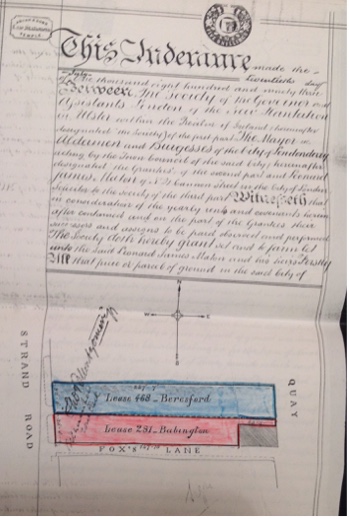 This Indenture made the
twentieth day
of July one thousand eight hundred and ninety three
Between The Society of the Governor and
Assistants London of the New Plantation
in Ulster within the Realm of Ireland (hereinafter
designated the Society) of the first part The Mayor
Aldermen and Burgesses of the City of Londonderry
acting by the Town Council of the said City (hereinafter
designated the Grantees) of the second part and Leonard
James
Street in the City of London
to the Society of the third part Witnesseth that
in consideration of the yearly rent and covenants herein
after contained and on the part of the Grantees their
successors and assigns to be paid observed and performed
The Society doth hereby grant and to farm let
unto the said Leonard James and his heirs Firstly
All that piece or parcel of ground in the said City of
N
W E
S
STRAND ROAD
Montgomery
Lease 468 - Beresford
QUAY
Lease 281 - Babington
FOX'S LANE